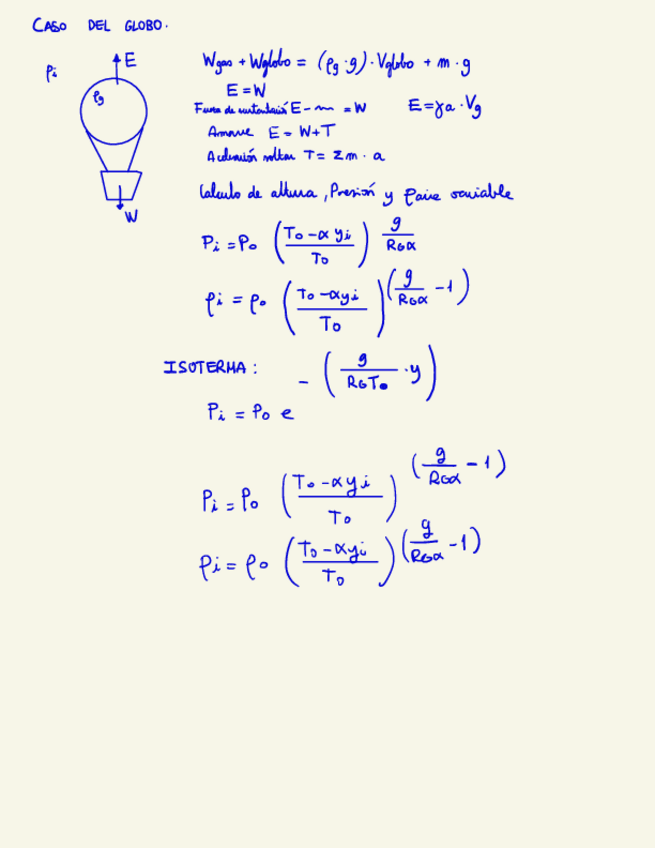 CASO DEL GLOBO.
E
ρi
ρg
W
Wgas + Wglobo = (ρg · g) · Vglobo + m · g
E = W
Fuerza de sustentación E - m = W E = γa · Vg
Amarre E = W + T
Aceleración T = Σm · a
Calculo de altura, Presión y ρaire variable
Pi = Po ((To - αyi)/To) g/RGα
ρi = ρo ((To - αyi)/To)^(g/RGα - 1)
ISOTERMA:
Pi = Po e - (g/RGTo · y)
Pi = Po ((To - αyi)/To)^(g/RGα - 1)
ρi = ρo ((To - αyi)/To)^(g/RGα - 1)